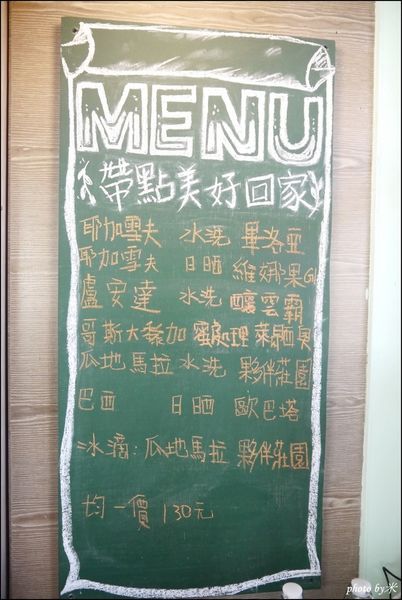 MENU
帶點美好回家
耶加雪夫 水洗 畢洛亞
耶加雪夫 日晒 維娜果G1
盧安達 水洗 釀雲霸
哥斯大黎加 蜜處理 萊麵臭
瓜地馬拉 水洗 夥伴莊園
巴西 日晒 歐巴塔
冰滴:瓜地馬拉 夥伴莊園
均一價 130元
photo by 米